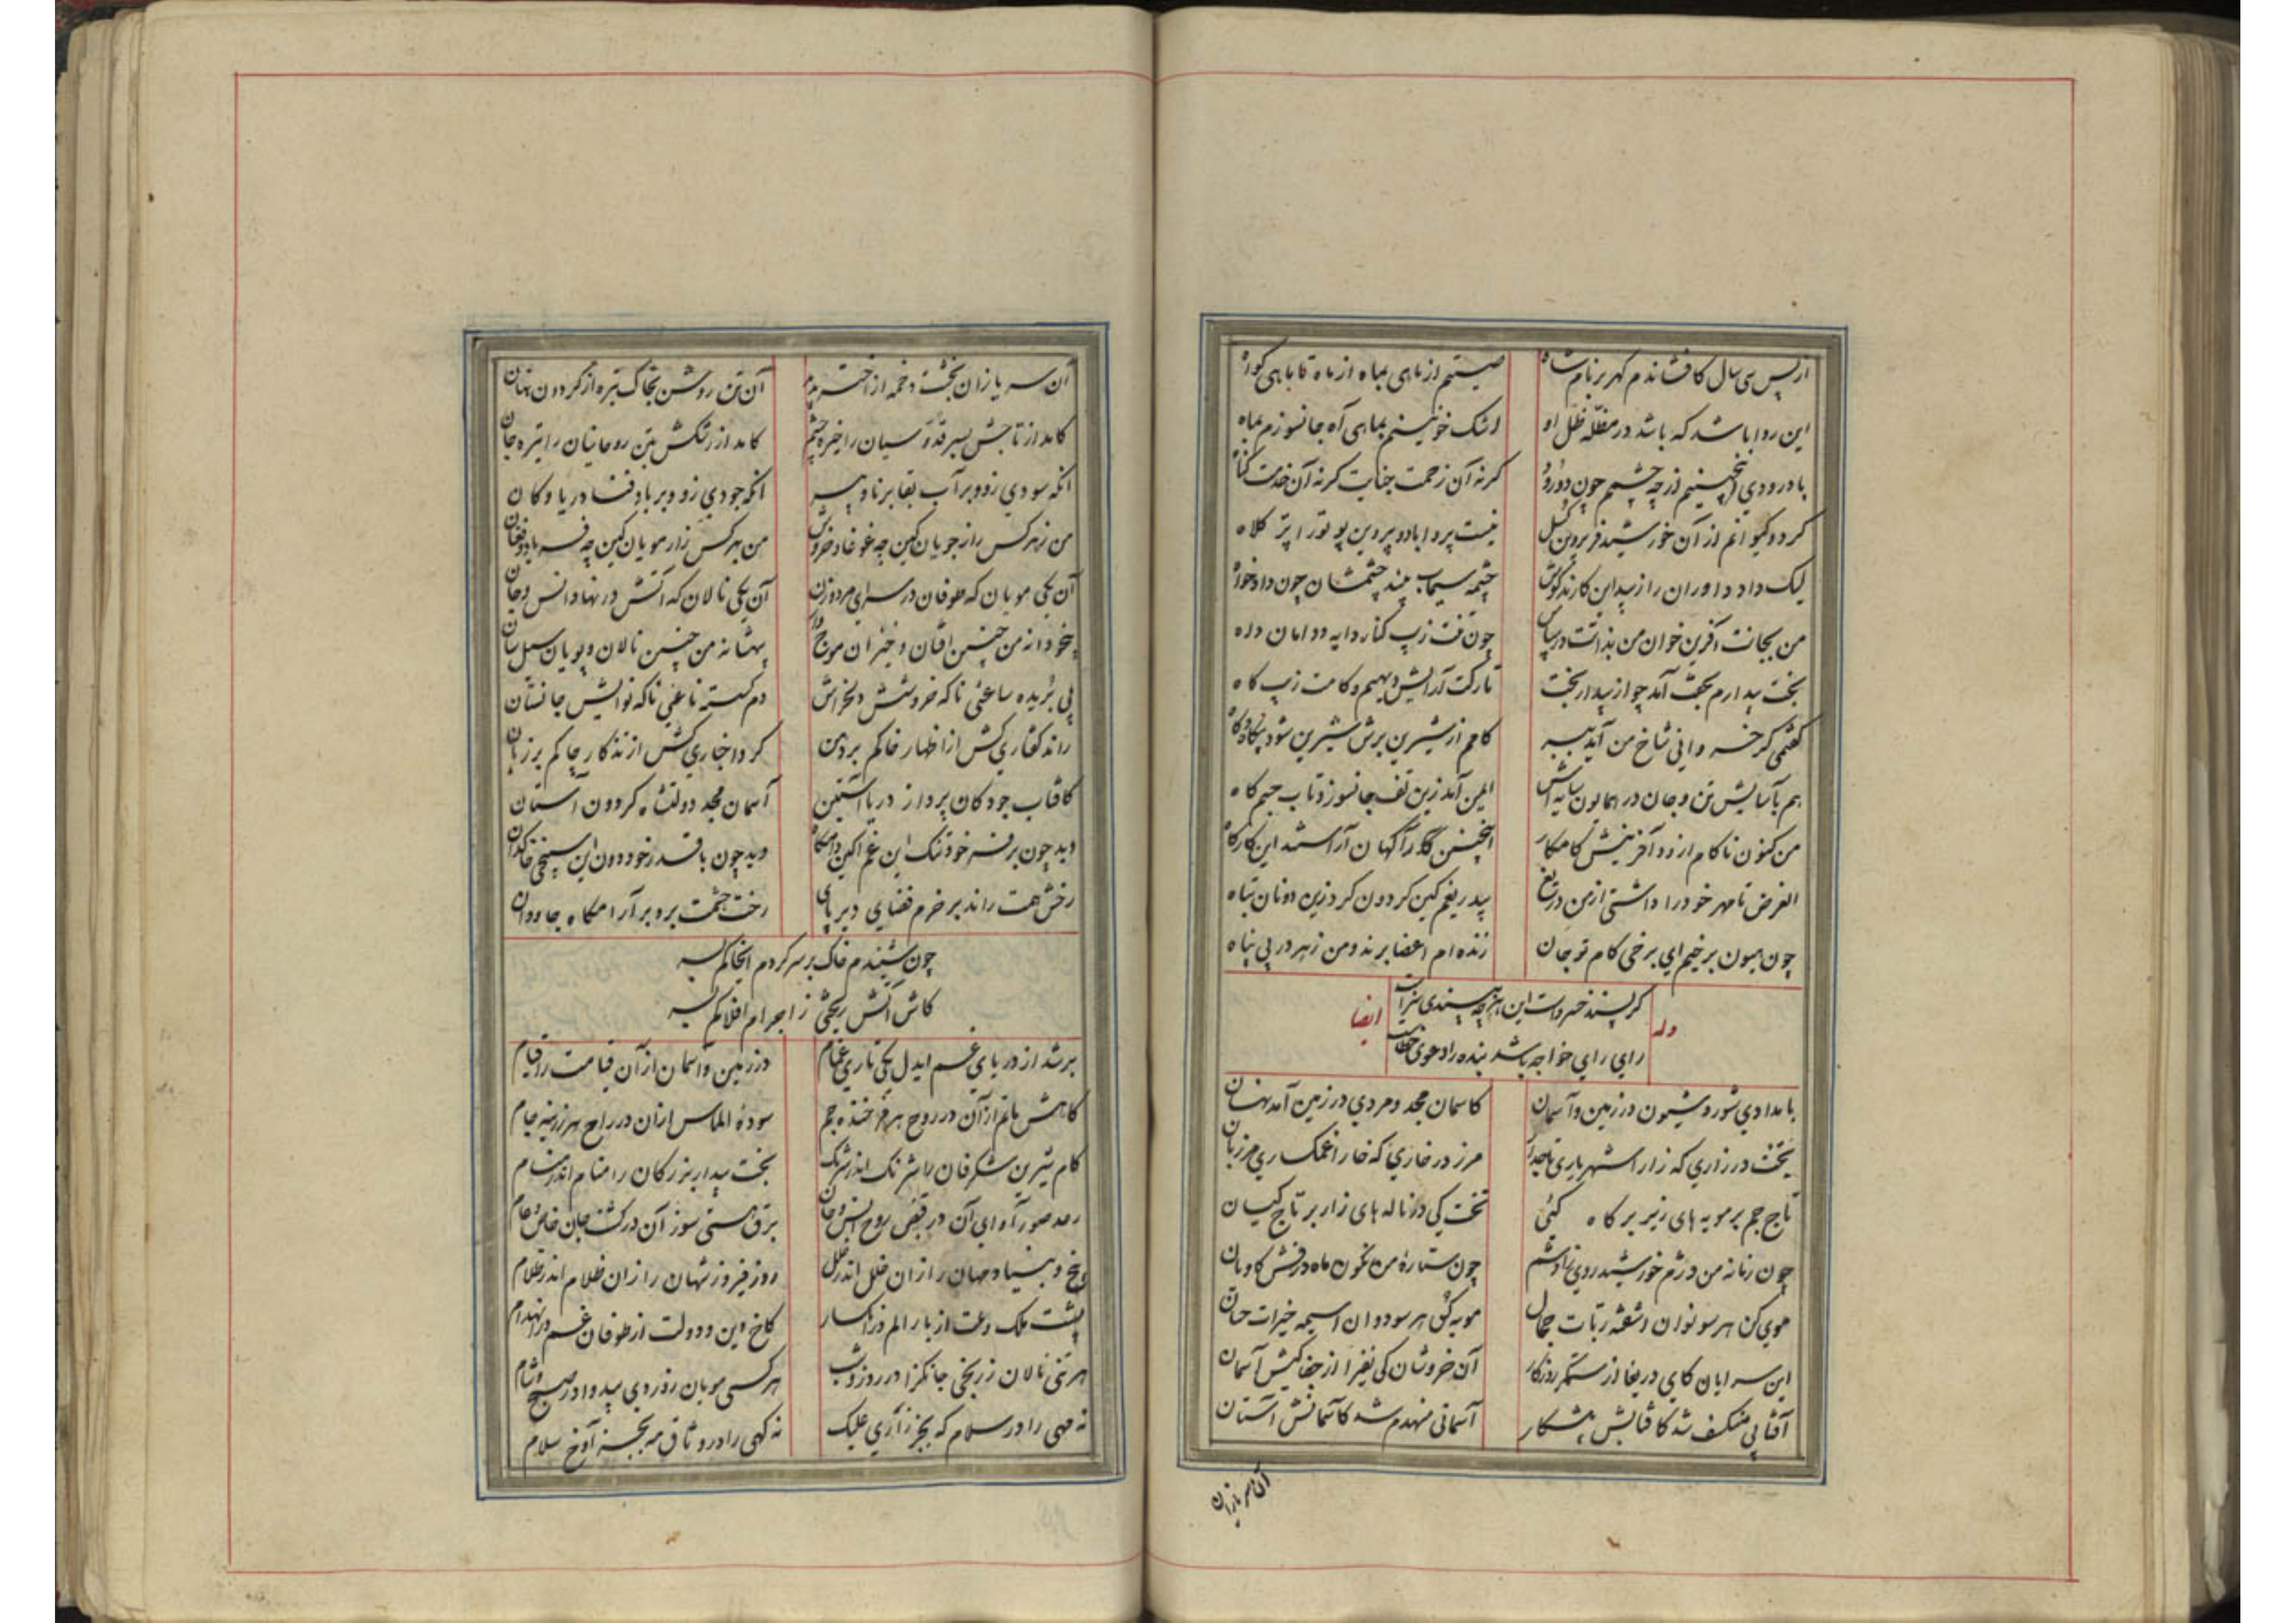 از پس سی سال کافشاندم گهر بر نام شاه
صیتم از ماهی بماه از ماه تا ماهی گواه
این روا باشد که باشد در مظلّه ظل او
اشک خونینم بماهی آه جانسوزم بماه
با درودی نیم از چه چشمم چون دو رود
کرنه آن زحمت جنایت کرنه آن خدمت گناه
کردد کیوانم از آن خورشید فر پروین کسل
نیست پروا با دو پروین پو تو را پتر کلاه
لیک داد داوران را زید این کار ندگوش
چشمه سیماب بیند چشمشان چون دادخواه
من بجانت آفرین خوان من بذاتت در سپاس
چون تفت زیب کنار دایه و دامان داه
بخت بیدارم بجهت آمد چو از بیدار بخت
تارکت آرایش دیهیم و کامت زیب گاه
گفتمی کر خسروانی شاخ من آید ببر
کامم از شیرین برش شیرین شود بیگاه و گاه
هم بآسایش تن و جان در همایون سایه اش
ایمن آمد زین تف جانسوز و تاب جسم کاه
من کنون ناکام از دو آفرینش کامکار
اینچنین کار آگهان آراستند این کارگاه
الغرض تا مهر خود را داشتی از من دریغ
بیدریغم کین گردون کرد زین دونان تباه
چون هیون بر خیم ای برخی کام تو جان
زنده ام اعضا برند و من ز هر در بی پناه
وله
گر پسند خسروست این هر چه بپسندی سزاست
رای رای خواجه باشد بنده را دعوی خطاست
ایضا
بامدادی شور و شیون در زمین و آسمان
کاسمان مجد و مردی در زمین آمد نهان
تخت در زاری که زار است شهریاری تاجدار
مرز در خاری که خار اغمکساری مرزبان
تاج جم بر مویه های زیر بر گاه کئی
تخت کی در ناله های زار بر تاج کیان
چون زمانه من دژم خورشید روی زاد شم
چون ستاره من نگون ماه درفش کاویان
موی کن هر سو نوان اشفته ربات جمال
مویه گو هر سو دوان اسیمه خیرات حسان
این سرایان کای دریغا از ستمگر روزگار
آن خروشان کی نفیرا از جفا کیش آسمان
آفتابی منکسف شد کافتابش پیشکار
آسمانی منهدم شد کآسمانش آستان
آن سر یازان
آن سر یازان بخشت دخمه از اختر دژم
آن تن روشن بخاک تیره از گردون نهان
کامد از تاجش بسر قدوسیان را خیره چشم
کامد از رنگش بتن روحانیان را تیره جان
آنکه سودی زو و بر آب بقا برنا و پیر
آنکه جودی زو و بر باد فنا دریا و کان
من ز هر کس راز جویان کین چه غوغا و خروش
من بهر کس زار مویان کین چه فریاد و فغان
آن یکی مویان که طوفان در سرای مرد و زن
آن یکی نالان که آتش در نهاد انس و جان
بیخودانه من چنین افتان و خیزان موج وار
بیهشانه من چنین نالان و پویان سیل سان
پی بریده ساعئی ناگه خروشش دلخراش
دم گسسته ناعئی ناگه نوایش جانستان
راند گفتاری کش از اظهار خاکم بر دهن
کرد اخباری کش از تذکار چاکم بر زبان
کافتاب جود کان پرداز دریا آستین
آسمان مجد دولتشاه گردون آستان
دید چون بر فر خود تنگ این غم آگین دامگاه
دید چون با قدر خود دون این سپنجی خاکدان
رخش همت راند بر خرم فضای دیر پای
رخت حشمت برد بر آرامگاه جاودان
چون شنیدم خاک بر سر کردم ایخاکم بسر
کاش آتش ریختی ز اجرام افلاکم بسر
بر شد از دریای غم ایدل یکی تاری غمام
در زمین و آسمان از آن قیامت را قیام
کاهش ماتم از آن در روح هر فرخنده جم
سوده الماس از آن در راح هر زرینه جام
کام شیرین شگرفان را شرنگ اندر شرنگ
بخت بیدار بزرگان را منام اندر منام
رعد صور آوای آن در قبض روح انس و جان
برق هستی سوز آن در کشت جان خاص و عام
بیخ و بنیاد جهان را زان خلل اندر خلل
روز فیروز شهان را زان ظلام اندر ظلام
پشت ملک و ملت از بار الم در انکسار
کاخ دین و دولت از طوفان غم در انهدام
هر تنی نالان ز رنجی جانگزا در روز و شب
هر کسی مویان ز دردی بیدوا در صبح و شام
نه مهی را در سلام که بجز زآری علیک
نه کهی را در وثاق مه بجز آوخ سلام